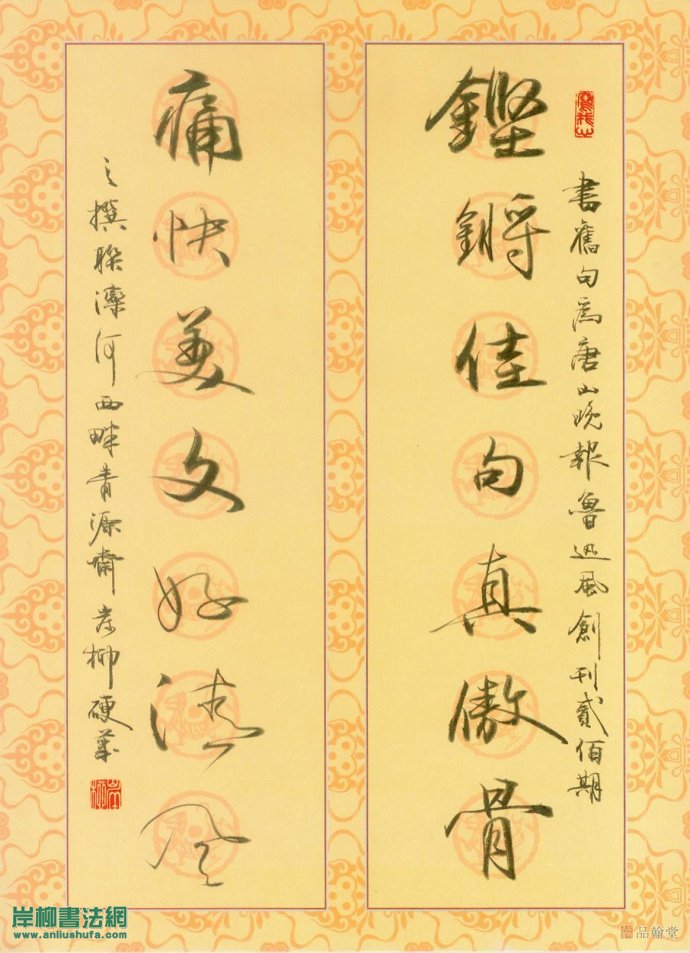 書舊句為唐山晚報魯迅風創刊貳佰期
鏗鏘佳句真傲骨
痛快美文好清風
之撰聯灤河西畔青源齋岸柳硬筆
岸柳書法網
www.anliushufa.com
品翰堂